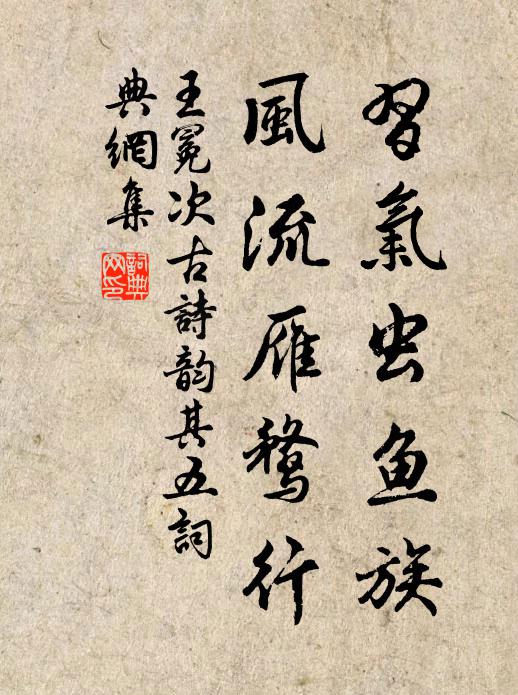 習氣虫魚族
風流雁鶩行
王冕次古詩韵其五詞
典網集
詞典網印